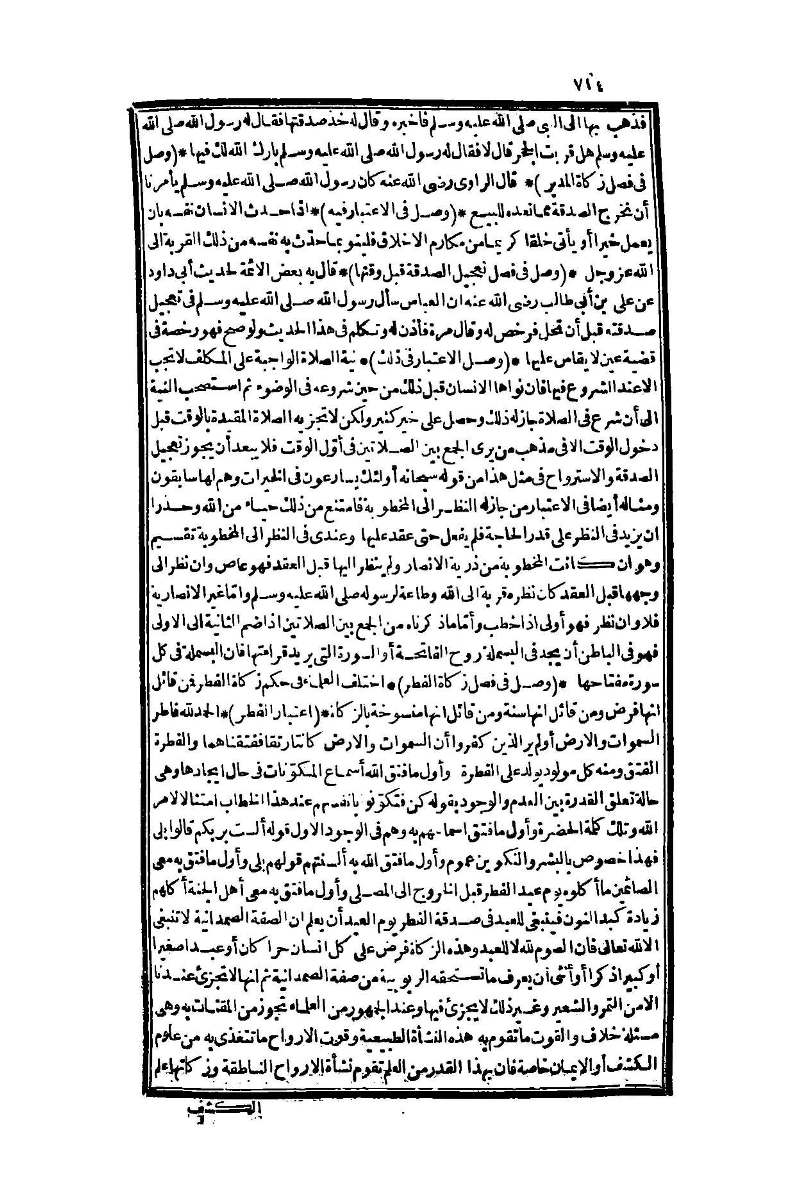 ٧١٤
فذهب بها الى النبى صلى الله عليه وسلم فاخبره وقال له خذ صدقتها فقال له رسول الله صلى الله
عليه وسلم هل قربت الخمر قال لا فقال له رسول الله صلى الله عليه وسلم بارك الله لك فيها *(وصل
فى فصل زكاة المدير)* قال الراوى رضى الله عنه كان رسول الله صلى الله عليه وسلم يأمرنا
أن نخرج الصدقة مما نعده للبيع *(وصل فى الاعتبار فيه)* اذا حدث الانسان نفسه بان
يعمل خيرا أو يأتى خلقا كريما من مكارم الاخلاق فلينو بما حدّث به نفسه من ذلك القربة الى
الله عز وجل *(وصل فى فصل تعجيل الصدقة قبل وقتها)* قال به بعض الائمة لحديث أبى داود
عن على بن أبى طالب رضى الله عنه ان العباس سأل رسول الله صلى الله عليه وسلم فى تعجيل
صدقته قبل أن تحل فرخص له وقال مرة فأذن له وتكلم فى هذا الحديث ولو صح فهو رخصة فى
قضية عين لا يقاس عليها *(وصل الاعتبار فى ذلك)* نية الصلاة الواجبة على المكلف لا تجب
الا عند الشروع فيها فان نواها الانسان قبل ذلك من حين شروعه فى الوضوء ثم استصحب النية
الى أن شرع فى الصلاة جاز له ذلك وحصل على خير كثير ولكن لا تجزيه الصلاة المقيدة بالوقت قبل
دخول الوقت الا فى مذهب من يرى الجمع بين الصلاتين فى أوّل الوقت فلا يبعد أن يجوز تعجيل
الصدقة والاسترواح فى مثل هذا من قوله سبحانه أولئك يسارعون فى الخيرات وهم لها سابقون
ومثاله أيضا فى الاعتبار من جازله النظر الى المخطوبة فامتنع من ذلك حياء من الله وحذرا
ان يزيد فى النظر على قدر الحاجة فلم يفعل حتى عقد عليها وعندى فى النظر الى المخطوبة تقسيم
وهو ان كانت المخطوبة من ذرية الانصار ولم ينظر اليها قبل العقد فهو عاص وان نظر الى
وجهها قبل العقد كان نظره قربة الى الله وطاعة لرسوله صلى الله عليه وسلم وامّا غير الانصارية
فلا وان نظر فهو أولى اذا خطب وأمّا ما ذكرناه من الجمع بين الصلاتين اذا ضم الثانية الى الاولى
فهو فى الباطن أن يجد فى البسملة روح الفاتحة أو السورة التى يريد قراءتها فان البسملة فى كل
سورة مفتاحها *(وصل فى فصل زكاة الفطر)* اختلف العلماء فى حكم زكاة الفطر فمن قائل
انها فرض ومن قائل انها سنة ومن قائل انها منسوخة بالزكاة *(اعتبار الفطر)* الحمد لله فاطر
السموات والارض أو لم ير الذين كفروا أن السموات والارض كانتا رتقا ففتقناهما والفطرة
الفتق ومنه كل مولود يولد على الفطرة وأول ما فتق الله أسماع المكوّنات فى حال ايجادها وهى
حالة تعلق القدرة بين العدم والوجود بقوله كن فتكوّنوا بانفسهم عند هذا الخطاب امتثالا لامر
الله وتلك كلمة الحضرة وأول ما فتق اسماعهم به وهم فى الوجود الاول قوله ألست بربكم قالوا بلى
فهذا خصوص بالبشر والتكوين عموم وأول ما فتق الله به ألسنتهم قولهم بلى وأول ما فتق به معى
الصائمين ما أكلوه يوم عيد الفطر قبل الخروج الى المصلى وأول ما فتق به معى أهل الجنة أكلهم
زيادة كبد النون فينبغى للعبد فى صدقة الفطر يوم العيد أن يعلم ان الصفة الصمدانية لا تنبغى
الا لله تعالى فان الصوم لله لا للعبد وهذه الزكاة فرض على كل انسان حرا كان أو عبد اصغيرا
أو كبيرا ذكرا أو أنثى أن يعرف ما تستحقه الربوبية من صفة الصمدانية ثم انها لا تجزئ عندنا
الا من التمر والشعير وغير ذلك لا يجزئ فيها وعند الجمهور من العلماء تجوز من المقتات به وهى
مسئلة خلاف والقوت ما تقوم به هذه النشأة الطبيعية وقوت الارواح ما تتغذى به من علوم
الكشف أو الايمان خاصة فان بهذا القدر من العلم تقوم نشأة الارواح الناطقة وزكاتها علم
الكشف